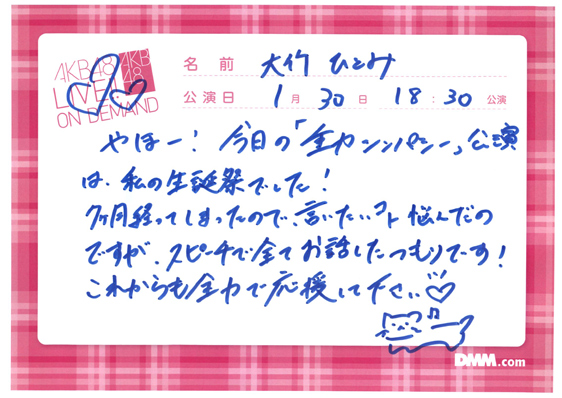 AKB48
LIVE!!
ON DEMAND
AKB
48
名前 大竹 ひとみ
公演日 1月30日 18:30公演
やほー! 今日の「全力シンパシー」公演
は、私の生誕祭でした!
7ヶ月経ってしまったので、言いたいコト悩んだの
ですが、スピーチで全てお話したつもりです!
これからも全力で応援して下さい♡
DMM.com